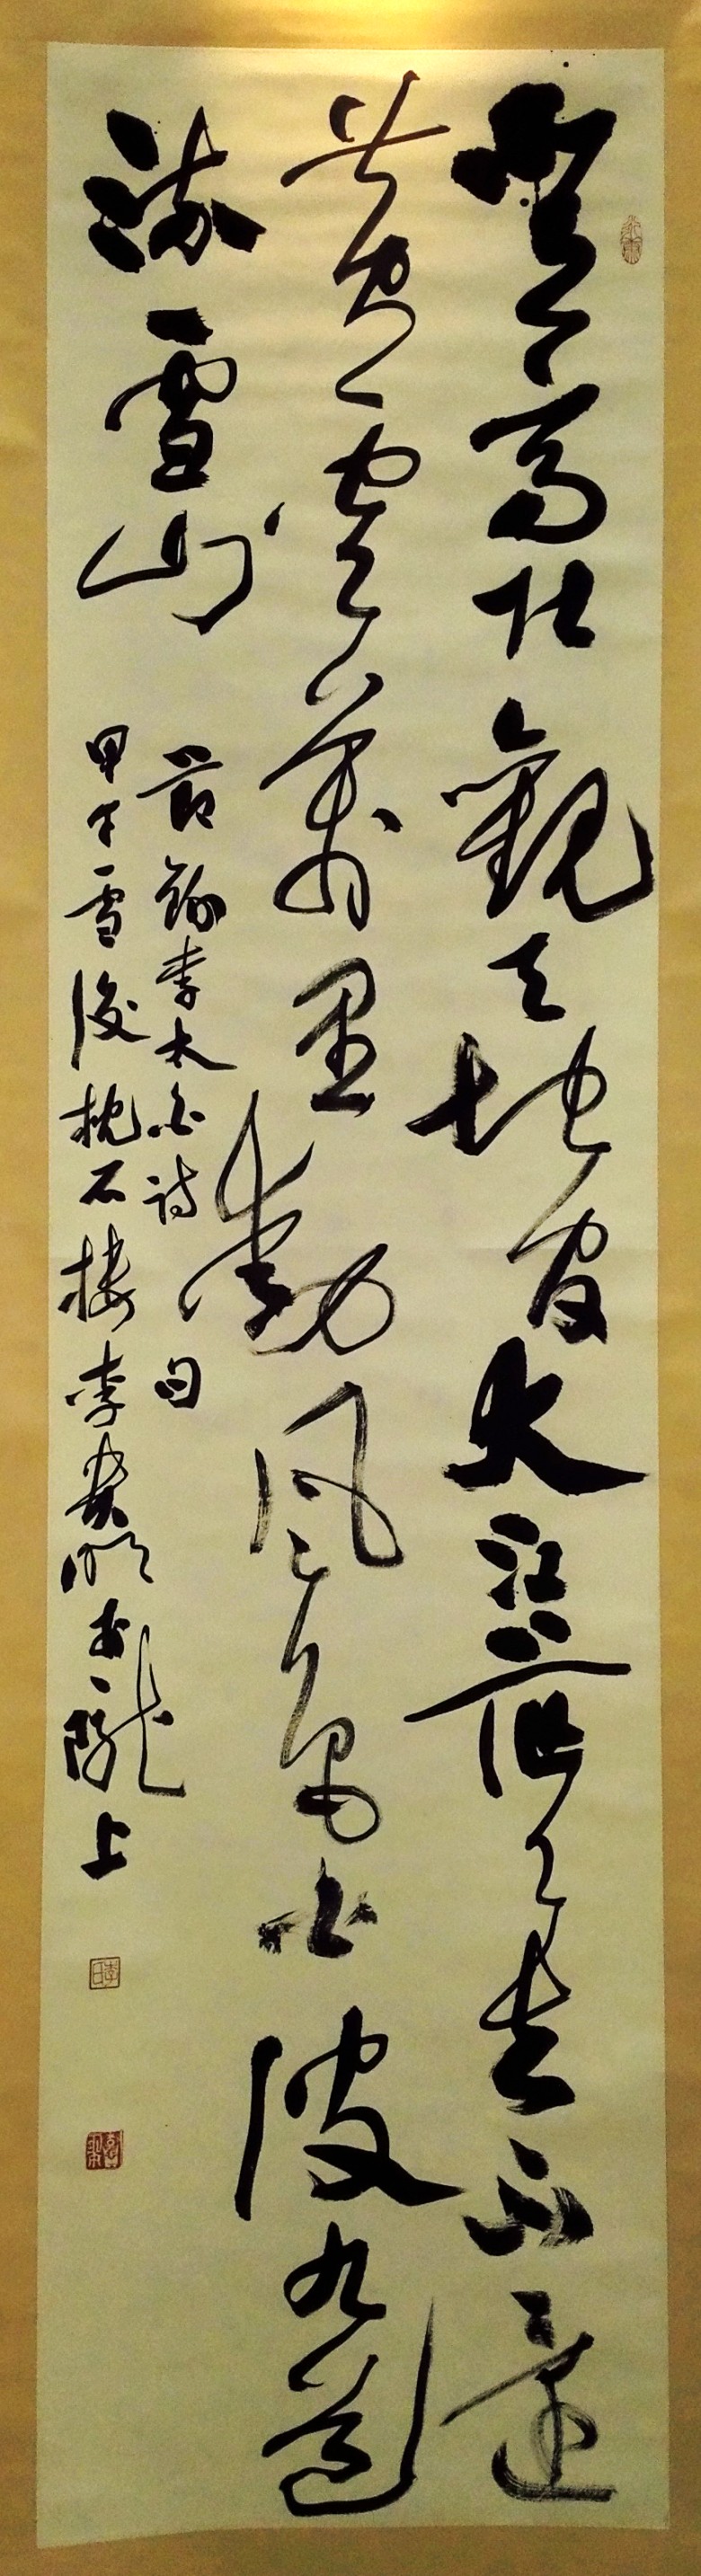 登高壮觀天地間大江茫茫去不還
黄雲萬里動風色白波九道
流雪山
節錦李太白诗句
甲午雪後枕石樓李貴明书於隴上